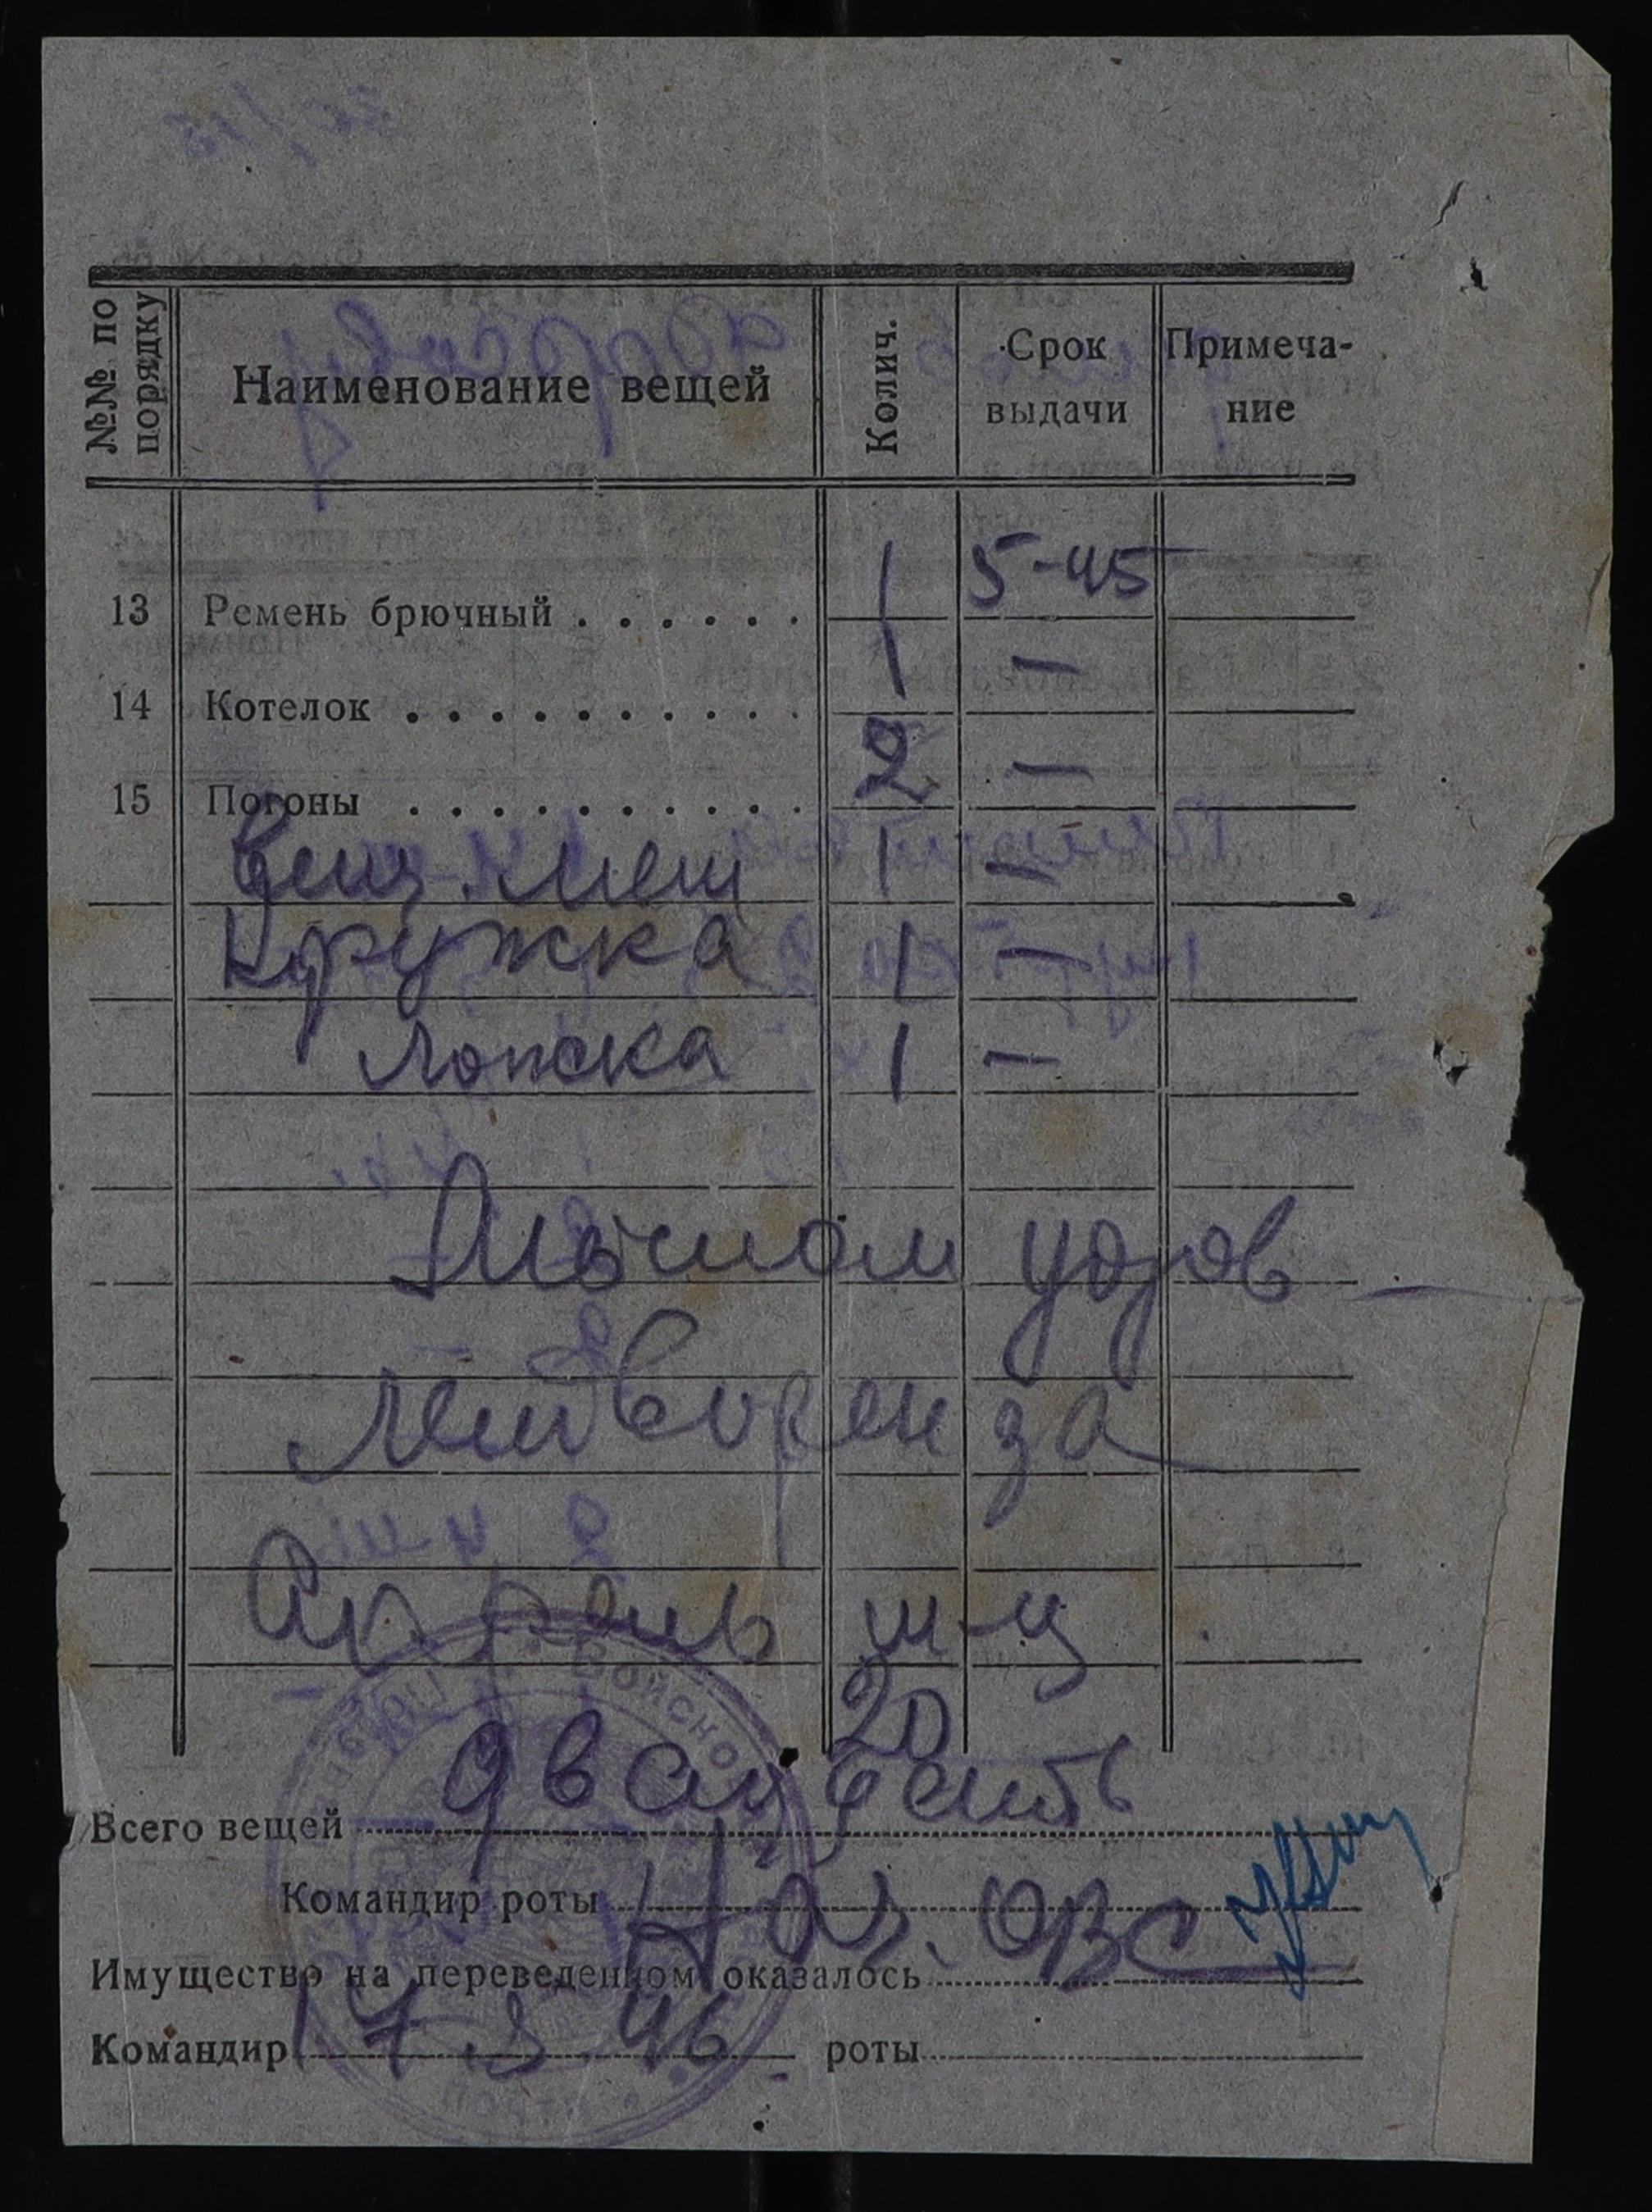 №№ по порядку Наименование вещей Колич. Срок выдачи Примеча-ние
13 Ремень брючный . . . . . . 1 5-45
14 Котелок . . . . . . . . . . 1 —
15 Погоны . . . . . . . . . . 2 —
Вещ. меш 1 —
Кружка 1 —
Ложка 1 —
Мылом удов
летворен за
Апрель м-ц
20
Всего вещей двадцать
Командир роты Нач. ОВС
Имущество на переведенном оказалось
Командир 17.3.46 роты